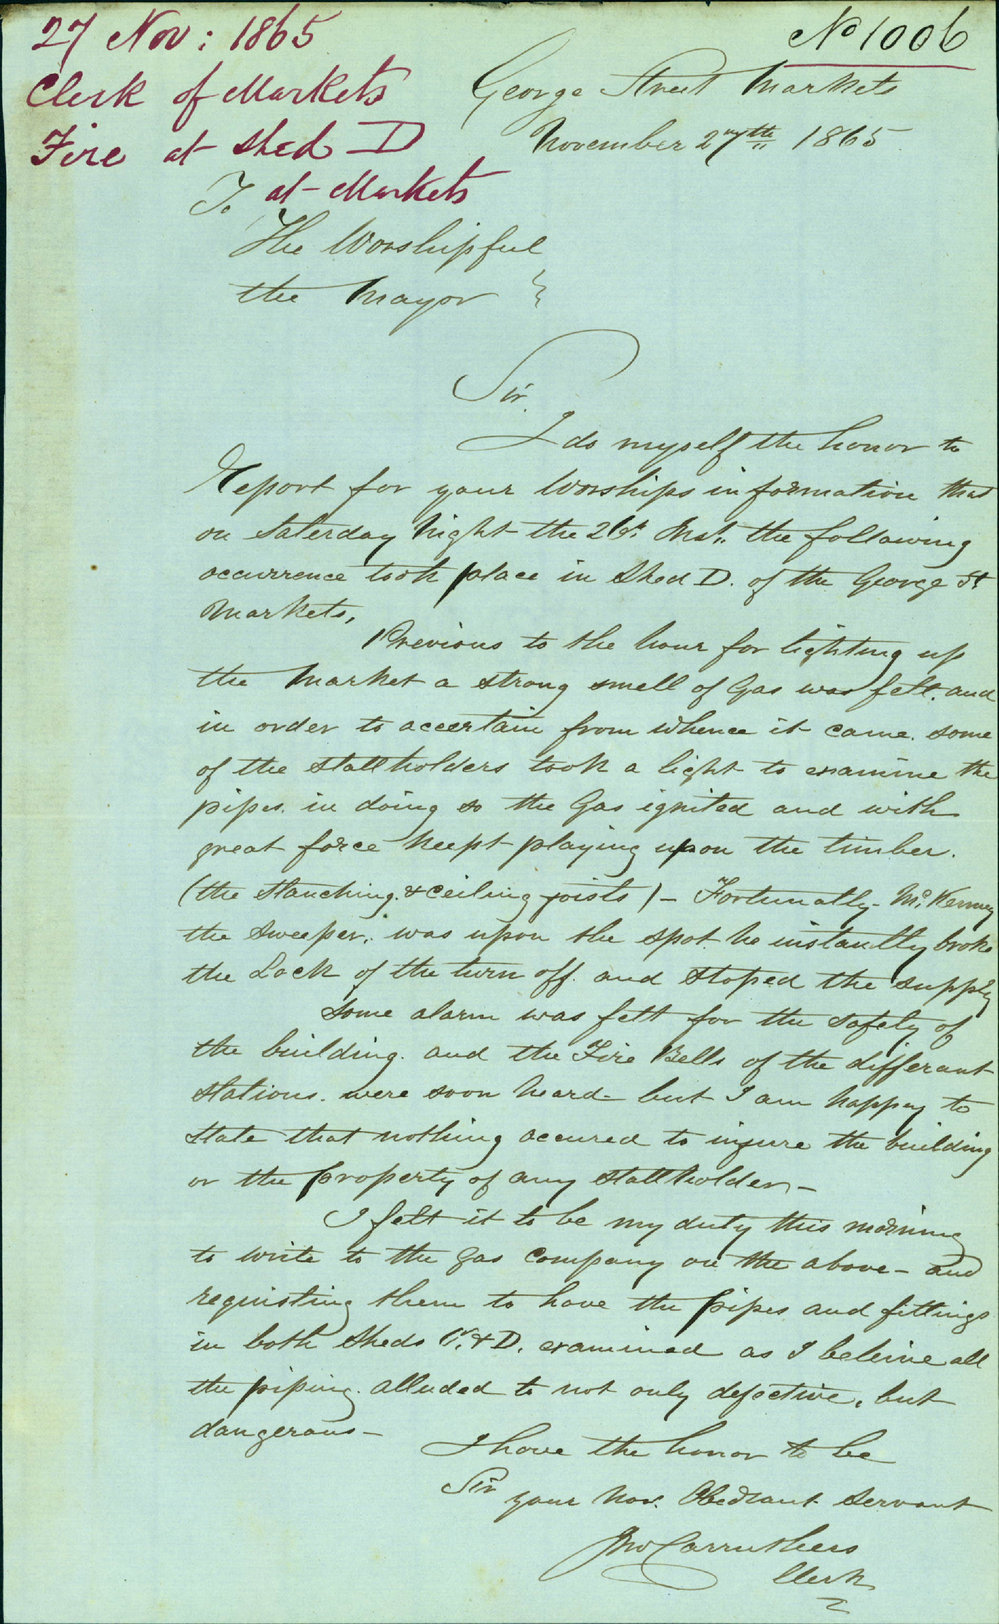 27 Nov: 1865
Clerk of Markets
Fire at Shed D
at Markets
No 1006
George Street Markets
November 27th 1865
To
The Worshipful
the Mayor
Sir
I do myself the honor to
Report for your Worships information that
on Saterday Night the 26t Inst. the following
occurrence took place in Shed D. of the George St
Markets,
Previous to the hour for lighting up
the Market a strong smell of Gas was felt. and
in order to accertain from whence it came. some
of the stallholders took a light to examine the
pipes. in doing so the Gas ignited and with
great force keept playing upon the timber.
(the Stanching. & Ceiling joists) - Fortunatly - Mc.
the Sweeper. was upon the spot he instantly broke
the Lock of the turn off. and stoped the supply
Some alarm was felt for the safety of
the building. and the Fire Bells of the differant
stations. were soon heard - but I am happy to
state that nothing accured to injure the building
or the property of any stallholder -
I felt it to be my duty this morning
to write to the Gas Company on the above - and
requisting them to have the pipes and fittings
in both Sheds & D. examined as I beleive all
the piping. alluded to not only defective, but
dangerous -
I have the honor to be
Sir
your Obediant Servant
Jno Carruthers
Clerk